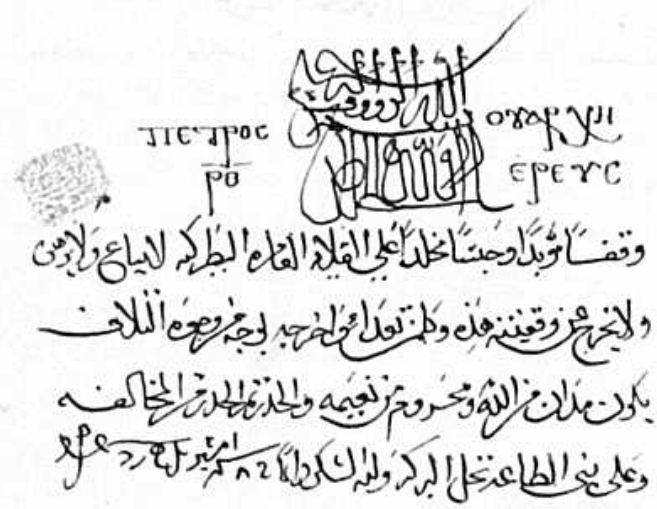 ⲡⲉⲧⲣⲟⲥ ⲟⲩⲁⲣⲭⲏ
ⲣⲑ ⲉⲣⲉⲩⲥ
وقفًا مؤبدًا وحبسًا مخلدًا علي القلايه العامره البطركيه لا يباع ولا يرهن
ولا يخرج عن وقفيته هذه وكلمن تعدا واخرجه بوجه من وجوه التلاف
يكون مدان من الله ومحروم من نعيمه والحذر ثم الحذر من المخالفه
وعلى بني الطاعة تحل البركه ولله الشكر دائمًا